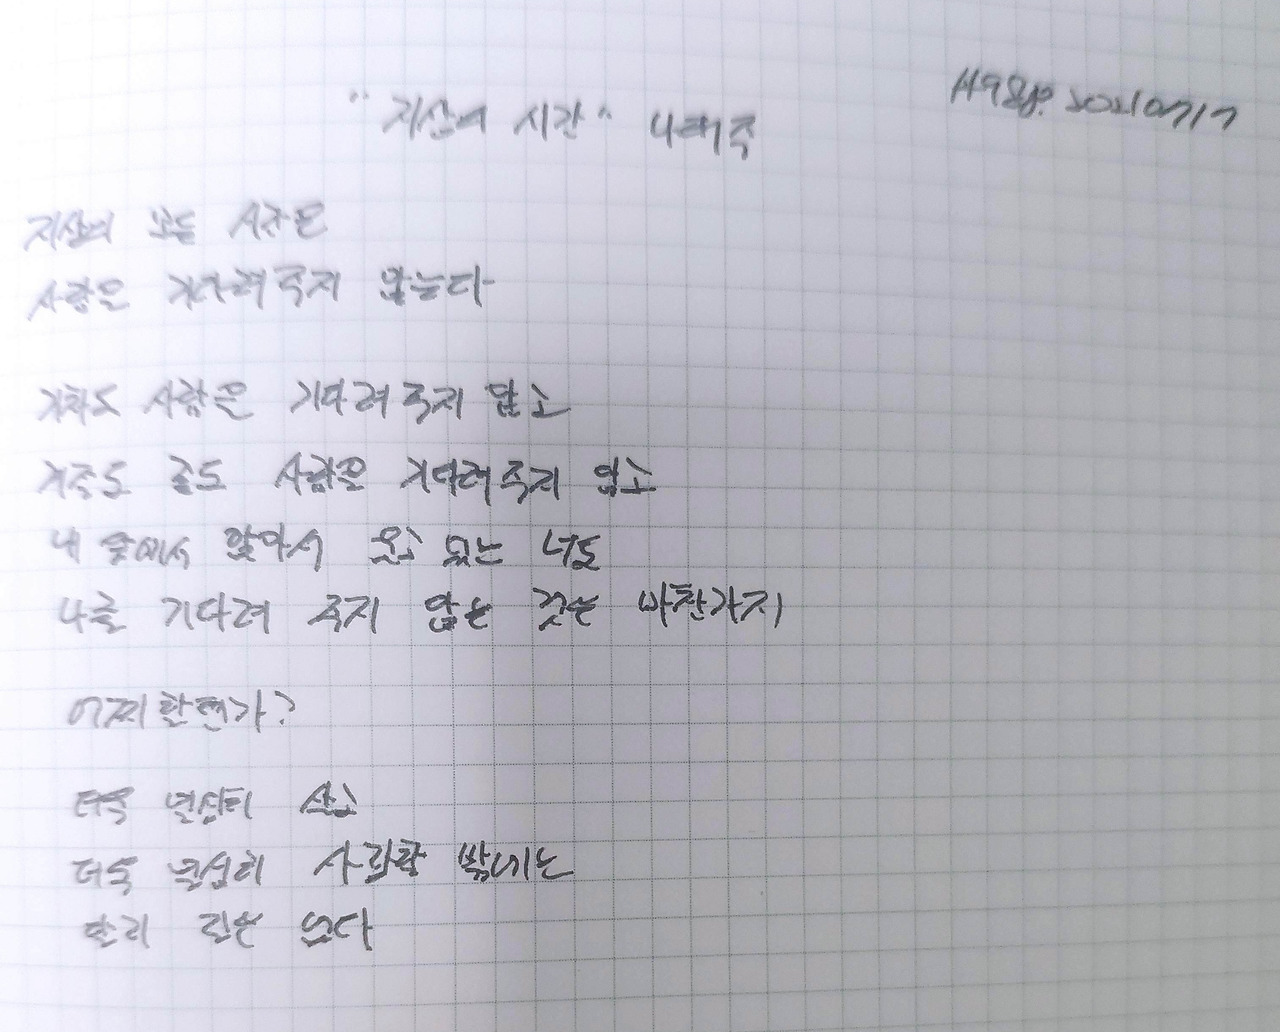 "지상의 시간" 나태주
20210717
지상의 모든 시간은
사람을 기다려주지 않는다
기차도 사람을 기다려주지 않고
사람을 기다려주지 않고
내 앉아서 웃고 있는 너도
나를 기다려 주지 않는 것은 마찬가지
더욱 열심히 살고
더욱 열심히 사랑할 밖에는
달리 길은 없다